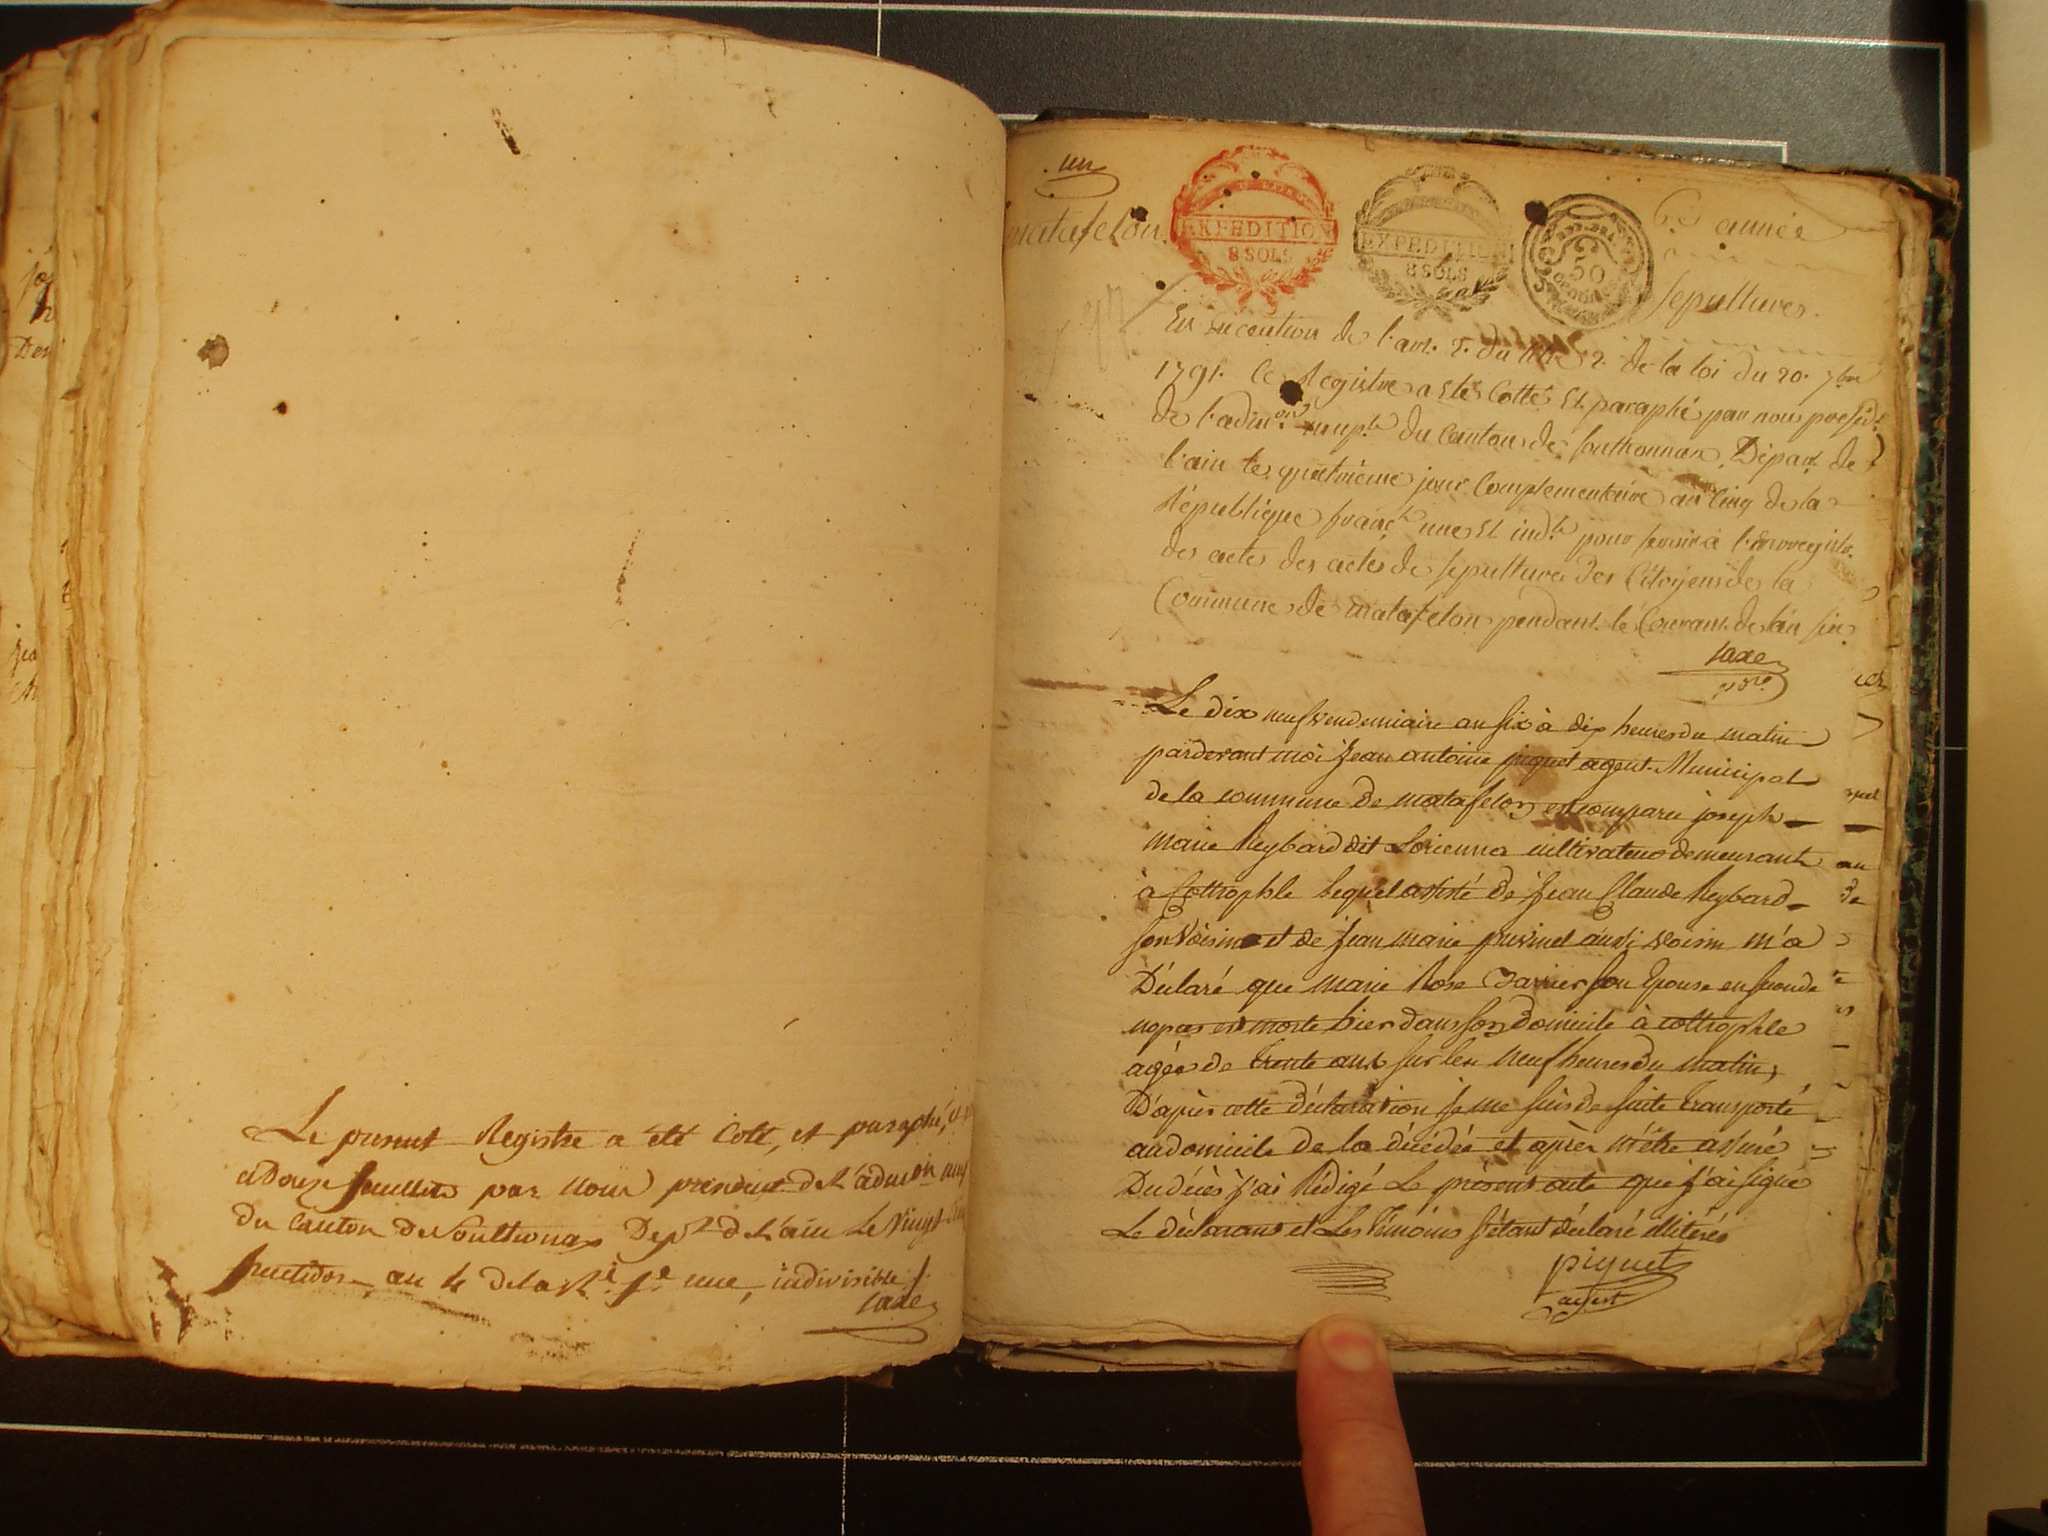 Le present Registre a été Coté, et paraphé,
a douze feuillets par nous president de L'adm.on mup
du Canton de Soulthonax Dep.t de L'ain Le Vingt
fructidor, au 4 de la R.e f.e une, indivisible /.
Iaxe
un
matafelon.
EXPEDITION
8 SOLS
EXPEDITION
8 SOLS
50
6.e année
Sepultures.
En execution de l'art. 2. du titre 2. de la loi du 20. 7bre
1791. Ce Registre a Eté Cotté Et paraphé par nous présid.t
de l'adm.on mup.le du Canton de Sonthonnax, Depart. de
l'ain le quatrieme jour Complementaire an Cinq de la
République franç.e une Et ind.le pour servir à l'Enregistr.
des actes des actes de sepulture des Citoyens de la
Commune de matafelon pendant le Courant de l'an six
Iaxe
Le dix neuf vendemiaire an six à dix heures du matin
pardevant moi Jean antoine piquet agent Municipal
de la commune de matafelon est comparu joseph
marie Reybard dit Lorienna cultivateur demeurant
à Cottrophle lequel assisté de Jean Claude Reybard
son Voisin et de Jean marie privinel aussi voisin m'a
Déclaré que marie Rose Tarvier son Epouse en seconde
nopces est morte hier dans son Domicile à cottrophle
agée de trente ans sur les neuf heures du matin,
D'après cette déclaration je me suis de suite transporté
au domicile de la décédée et après m'être assuré
Du décès j'ai Rédigé Le présent acte que j'ai signé
Le déclarant et Les témoins s'étant déclaré illiterés
piquet
agent